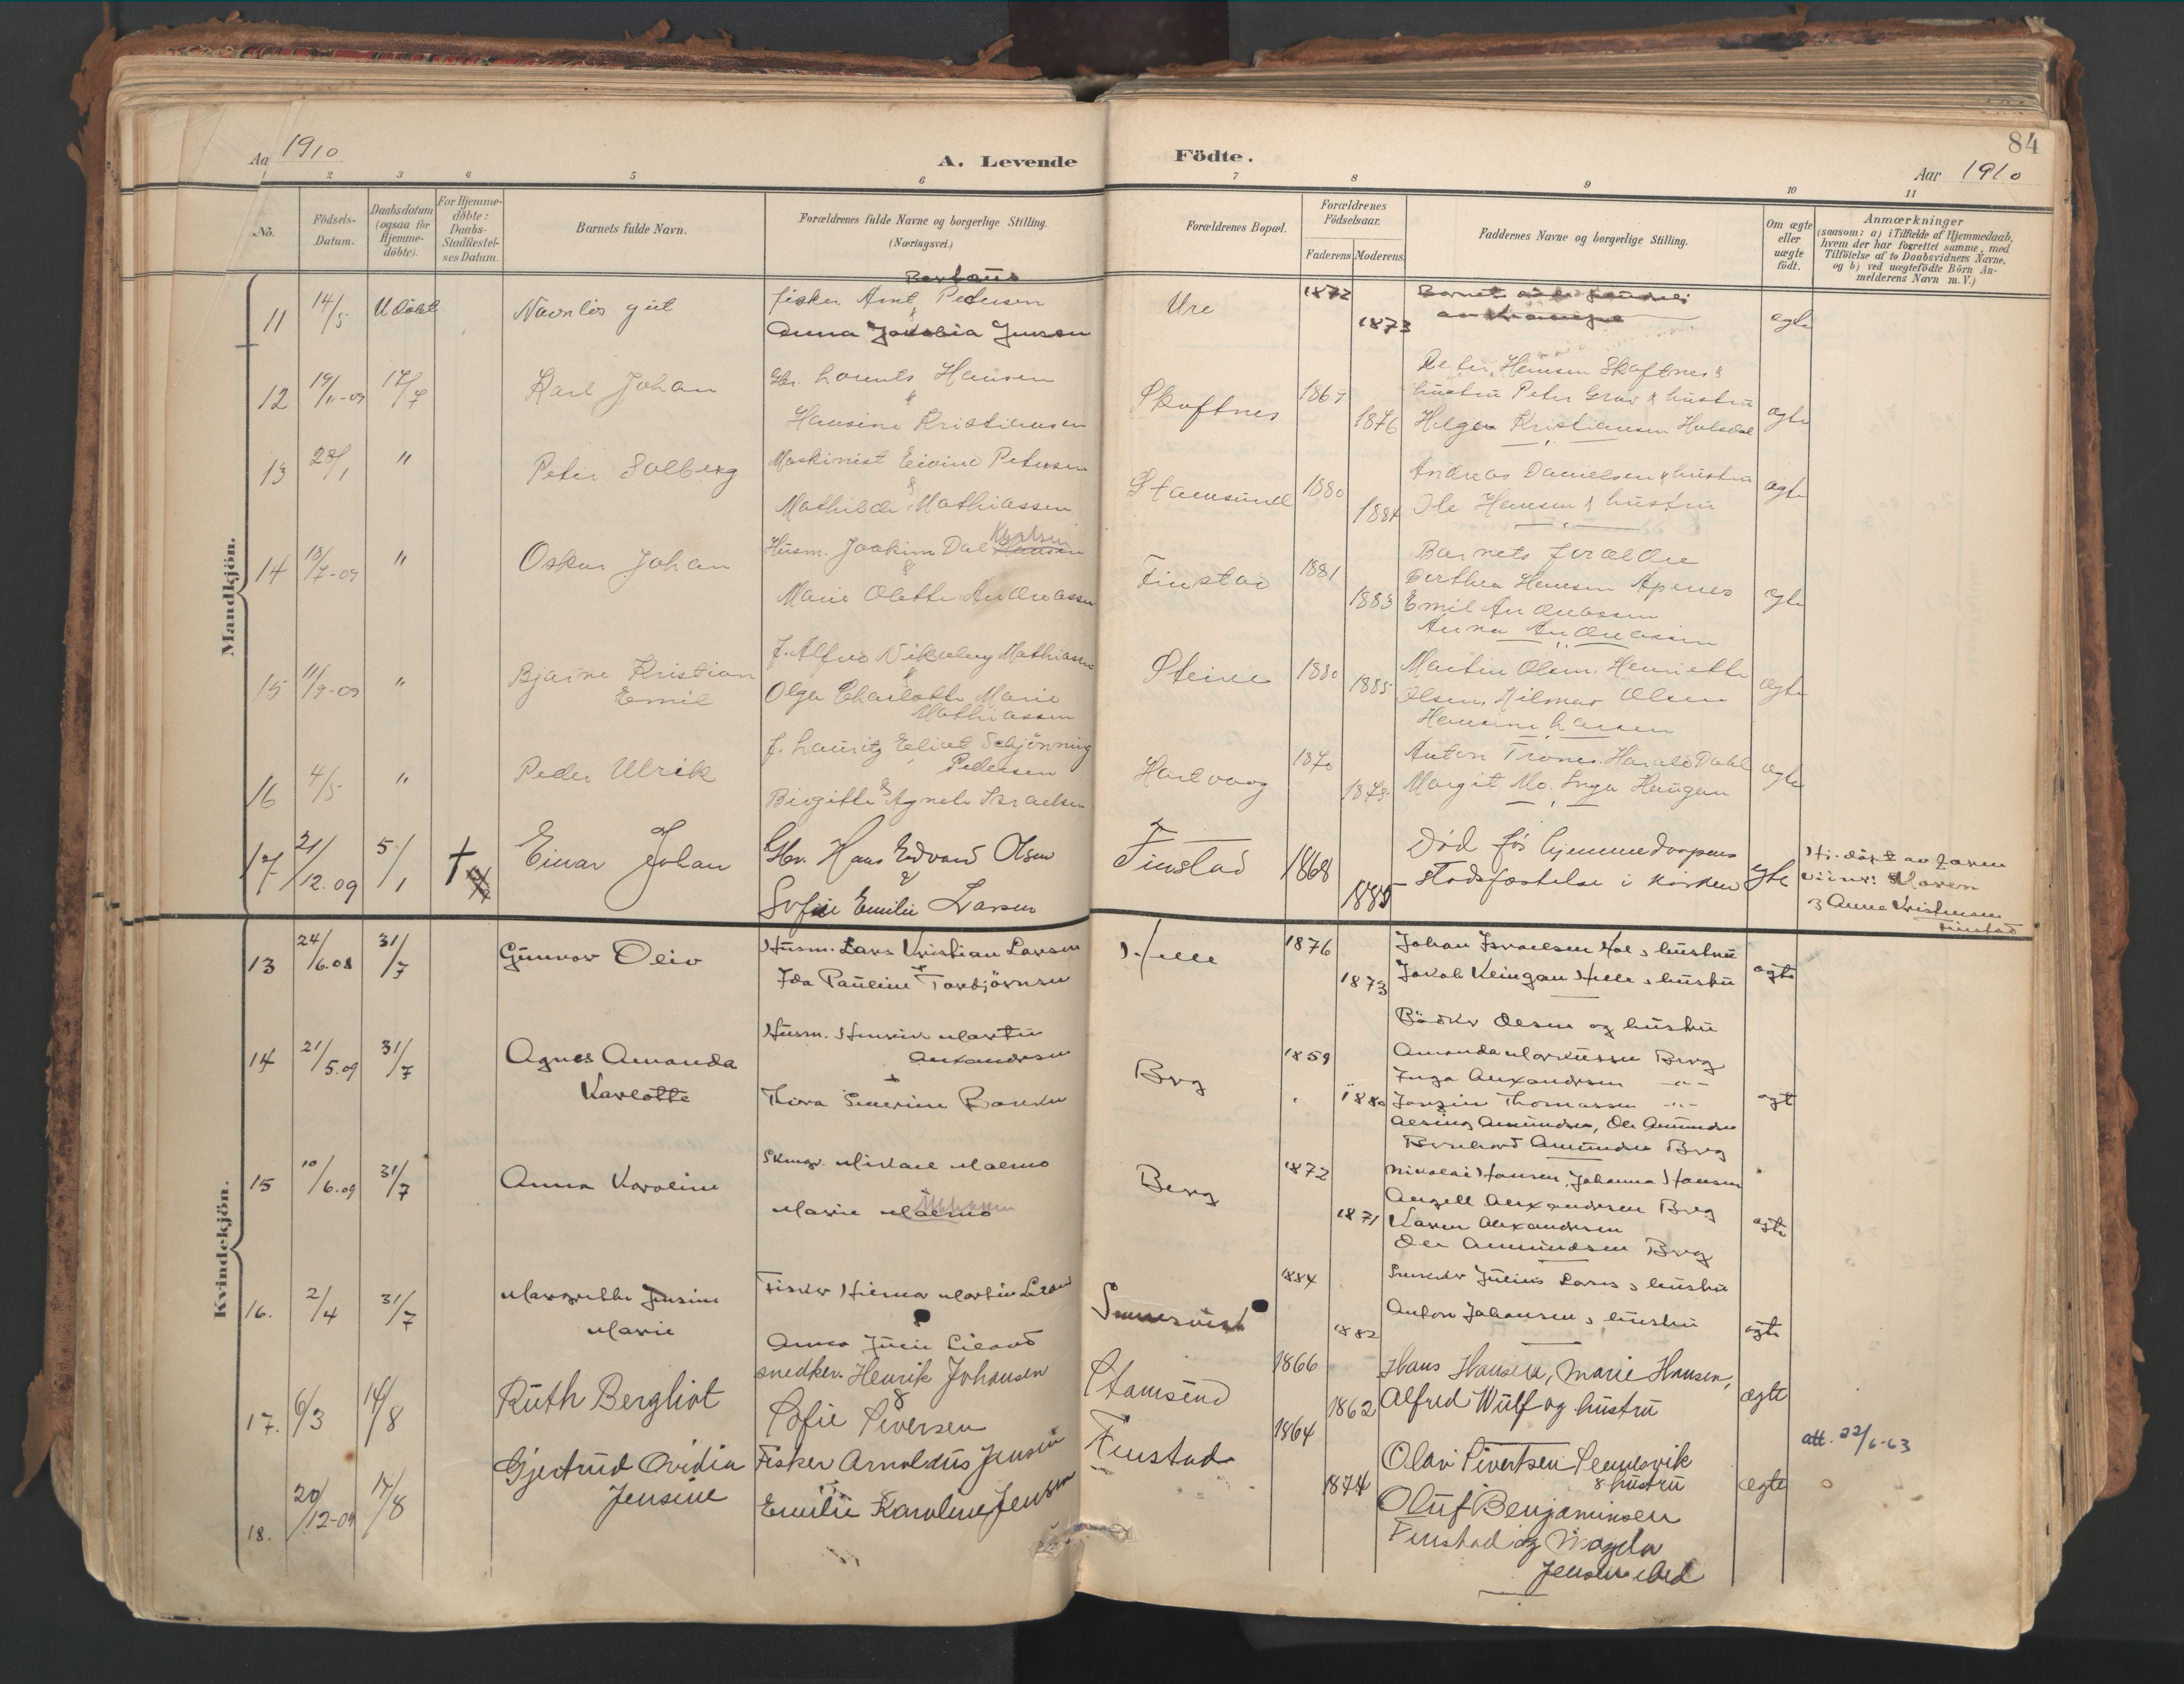 Aa 1910
A. Levende
Födte.
84
Aar 1910
1 2 3 4 5 6 7 8 9 10 11
No.
Födsels-
Datum.
Daabsdatum
(ogsaa for
Hjemme-
döbte).
For Hjemme-
döbte:
Daabs-
Stadfæstel-
ses Datum.
Barnets fulde Navn.
Forældrenes fulde Navne og borgerlige Stilling.
(Næringsvei.)
Forældrenes Bopæl.
Forældrenes
Födselsaar.
Faderens Moderens
Faddernes Navne og borgerlige Stilling.
Om ægte
eller
uægte
födt.
Anmærkninger
(saasom: a) i Tilfælde af Hjemmedaab,
hvem der har forrettet samme, med
Tilföielse af to Daabsvidners Navne,
og b) ved uægtefödte Börn An-
melderens Navn m. V.)
Mandkjön.
11 14/5 Udöbt Navnlös gut fisker Arnt Pedersen Ure 1872 ægte
&
Anna Jakobia Jensen 1873
12 19/11-09 17/7 Karl Johan Gbr. Lorents Hansen Skaftnes 1869 ægte
Peter Hansen Skaftnes &
hustru Peter Grav & hustru
&
Hansine Kristiansen 1876 Helga Kristiansen Holsdal
13 23/1 " Peter Solberg Maskinist Eivind Petersen Stamsund 1880 Andreas Danielsen & hustru ægte
&
Mathilde Mathiassen 1884 Ole Hansen & hustru
14 18/7-09 " Oskar Johan Husm. Joakim Dal Hansen Finstad 1881 Barnets forældre ægte
&
Marie Olette Andreassen 1883
Berthea Hansen Apenes
Emil Andreassen
Anna Andreassen
15 11/9-09 " Bjarne Kristian
Emil
f. Alfred Nikolay Mathiassen Steine 1880 ægte
&
Olga Charlotte Marie 1885
Mathiassen
Martin Olsen, Henriette
Olsen, Hilmar Olsen
Hansine Larsen
16 4/5 " Peder Ulrik f. Lauritz Eliot Schjönning
Pedersen
Hartvaag 1870 Anton Trones. Harald Dahl ægte
&
Birgitte Agnete Israelsen Margit Mo. Inga Haugan
17 21/12.09 5/1 † Einar Johan Gbr. Hans Edvard Olsen Finstad 1868 ægte
&
Sofie Emilie Larsen 1885
Död för hjemmedaapens
stadfæstelse i kirken
Hj. döpt av faren
vidner: Maren
& Anna Kristensen
Finstad
Kvindekjön.
13 24/6.08 31/7 Gunvor Oliv Husm. Lars Kristian Larsen Helle 1876 Johan Israelsen Hol & hustru ægte
Ida Pauline Torbjörnsen 1873 Jakob Klingan Helle & hustru
14 21/5.09 31/7 Agnes Amanda
Karlotte
Husm. Henrik Martin
Alexandersen
Berg 1859 ægt
Thora Severine 1880
Bödker Olsen og hustru
Amanda Markussen Berg
Inga Alexandersen -"-
Jørgine Thomassen -"-
Amundsen, Ole Amundsen
Bernhard Amundsen Berg
15 10/6.09 31/7 Anna Karoline Skrmgr. Mikael Malmo Berg 1872 ægte
Marie Malmo 1871
Nikolai Hansen, Johanna Hansen
Angell Alexandersen Berg
Karen Alexandersen
Ole Amundsen Berg
16. 2/4 31/7 Margrethe Jensine
Marie
Fisker Hilmar Martin Lland Sennesvik 1884 Snedker Julius Larsen & hustru
Anna Julie 1882 Anton Johansen & hustru ægte
17. 6/3 14/8 Ruth Bergliot snedker. Henrik Johansen Stamsund 1866 Hans Hansen, Marie Hansen, ægte
&
Sofie Siversen 1862 Alfred Wulf og hustru
18. 20/12-09 14/8 Gjertrud Ovidia
Jensine
Fisker Arnoldus Jensen Finstad 1864 ægte
&
Emilie Karoline Jensen 1874
Olav Sivertsen Sennesvik
& hustru
Oluf Benjaminsen
Finstad og Magda
Jensen ibid
att. 22/6-63